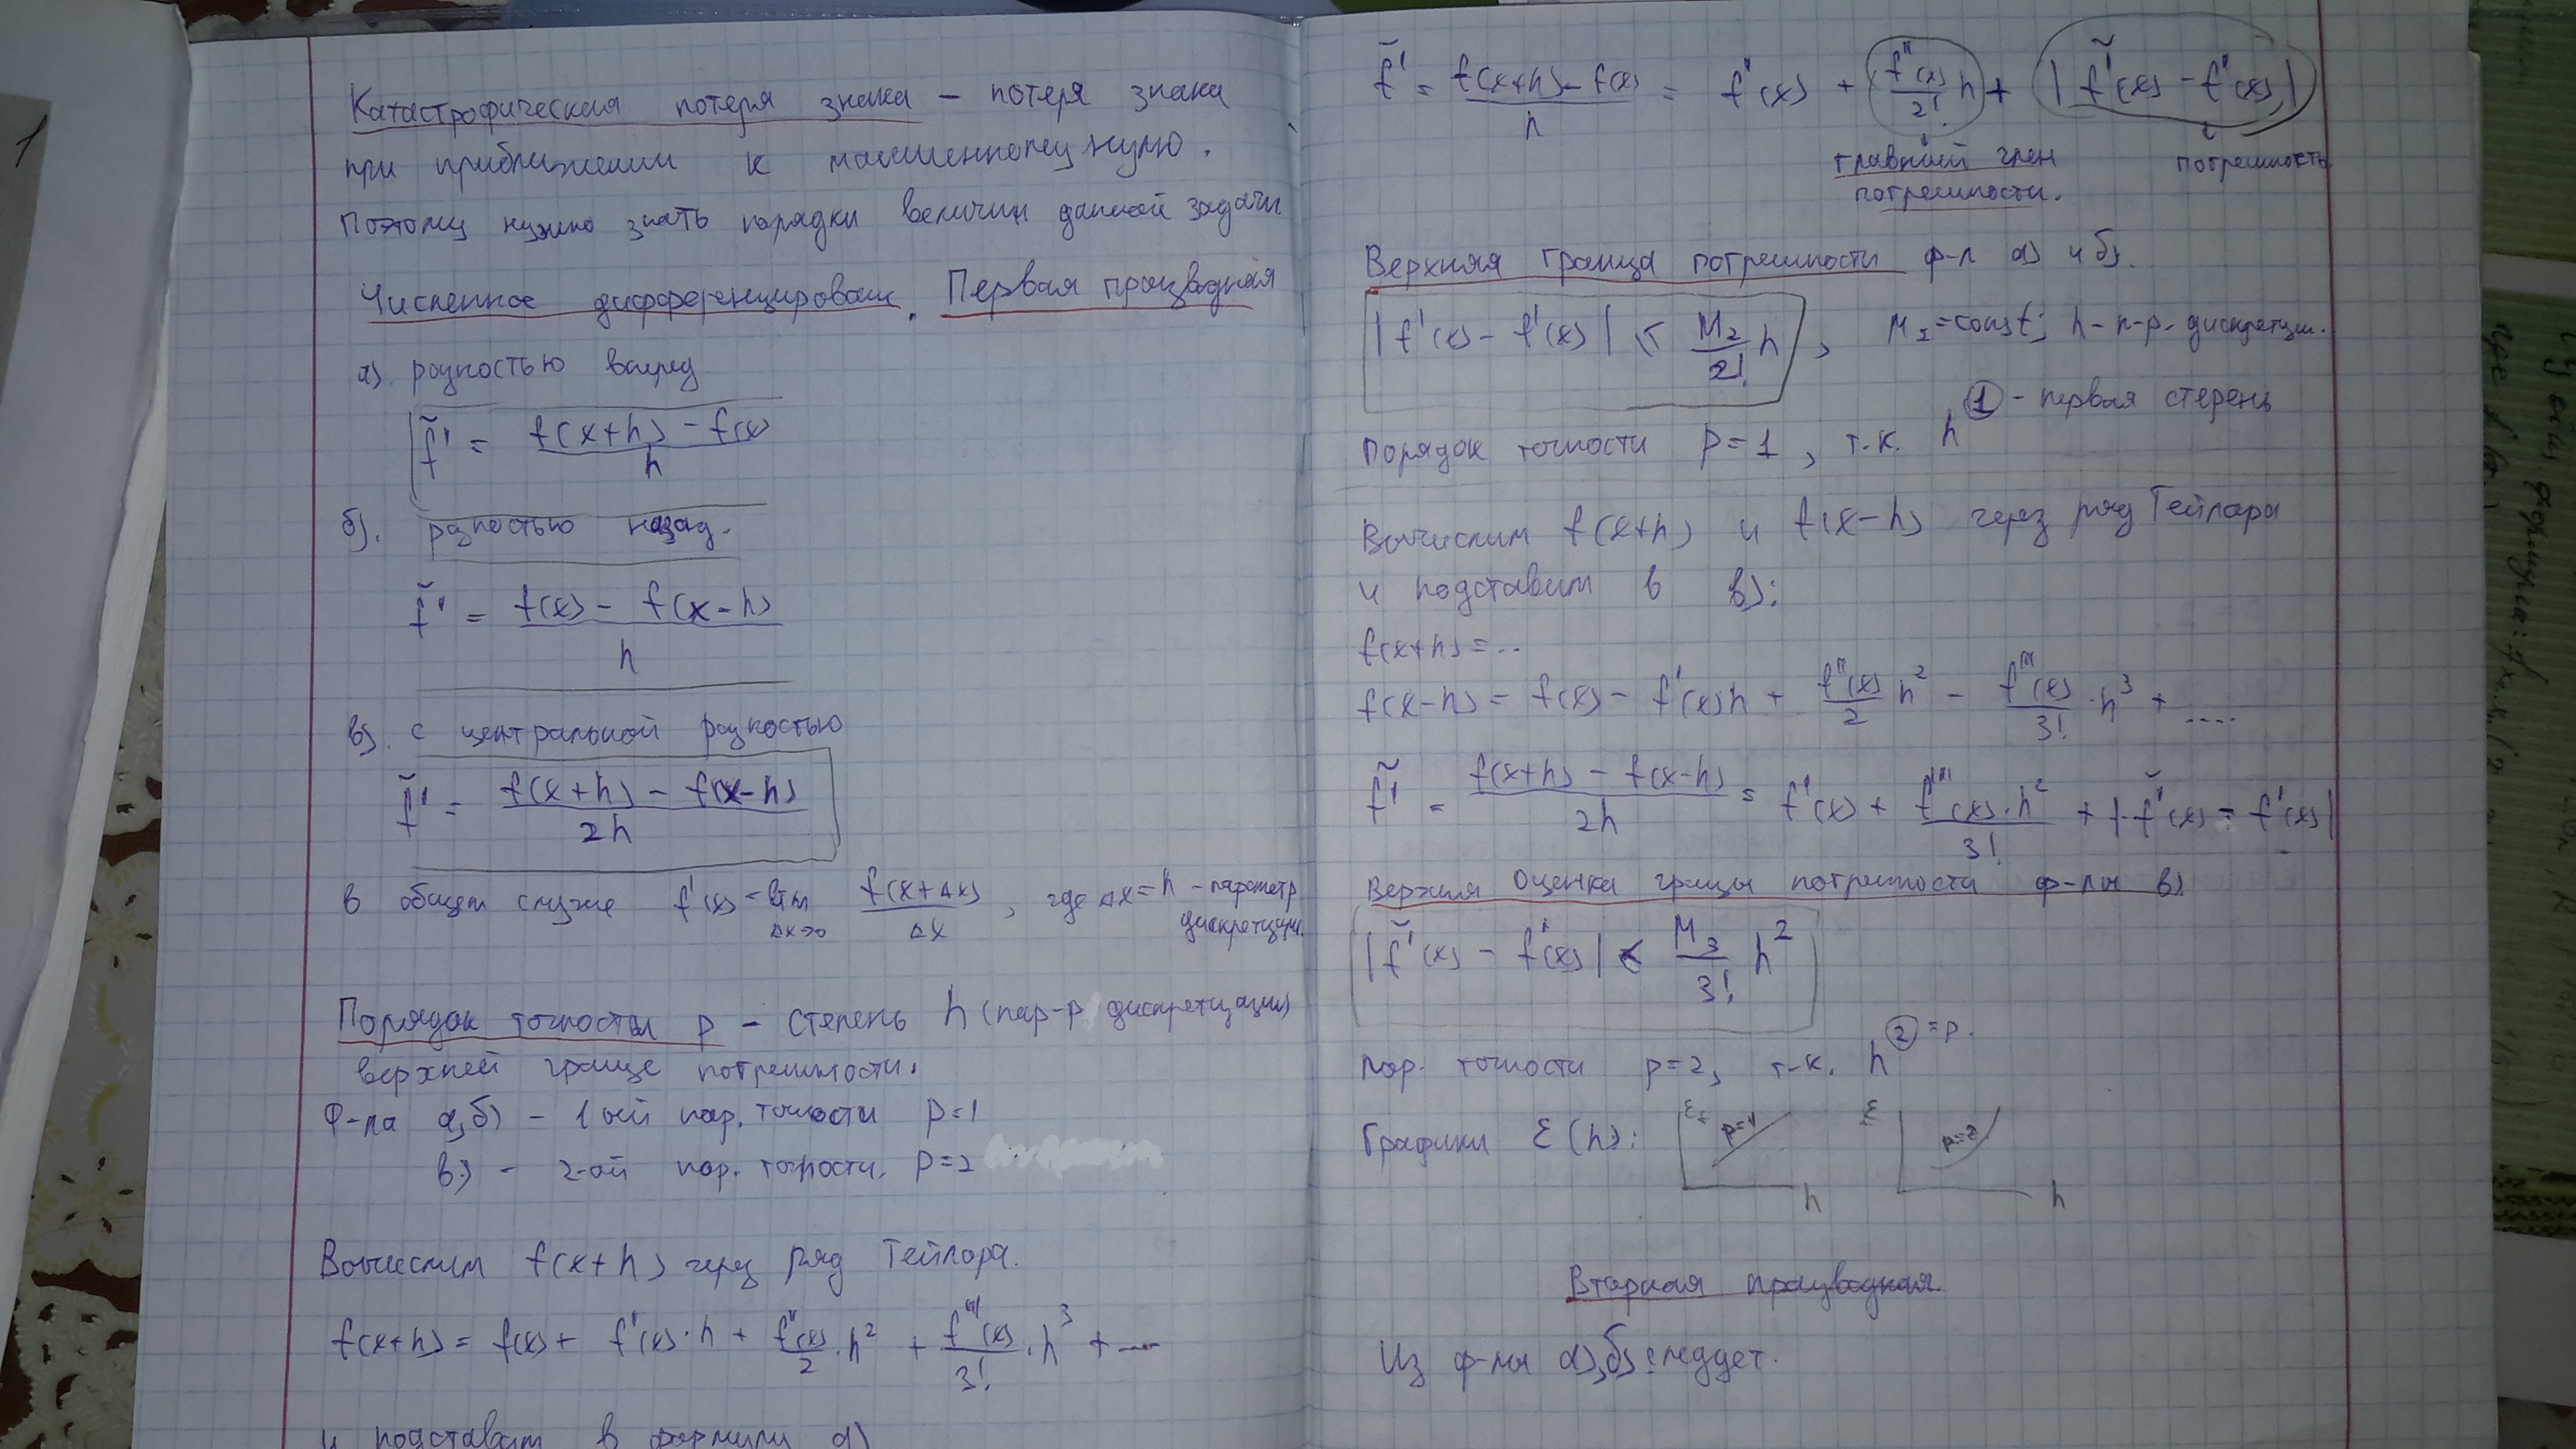 1
Катастрофическая потеря знака – потеря знака
при приближении к машинному нулю.
Поэтому нужно знать порядки величин данной задачи
Численное дифференцирован. Первая производная
а). разностью вперед
f̃' = (f(x+h) - f(x)) / h
б). разностью назад.
f̃' = (f(x) - f(x-h)) / h
в). с центральной разностью
f̃' = (f(x+h) - f(x-h)) / 2h
в общем случае f'(x) = lim Δx→0 f(x+Δx) / Δx, где Δx = h – параметр
дискретизации.
Порядок точности p – степень h (пар-р дискретизации)
верхней границе погрешности.
Ф-ла а,б) – 1 ый пор. точности p=1
в) – 2-ой пор. точности. p=2
Вычислим f(x+h) через ряд Тейлора.
f(x+h) = f(x) + f'(x)·h + f''(x)/2 ·h² + f'''(x)/3! ·h³ + ....
и подставим в формулу а)
f̃' = (f(x+h) - f(x)) / h = f'(x) + f''(x)/2! h + |f̃'(x) - f'(x)|
главный член погрешность
погрешности.
Верхняя граница погрешности ф-л а) и б).
|f'(x) - f'(x)| ≤ M₂/2! h, M₂ = const; h – п-р. дискретизц.
Порядок точности p = 1, т.к. h¹ – первая степень
Вычислим f(x+h) и f(x-h) через ряд Тейлора
и подставим в в):
f(x+h) = ...
f(x-h) = f(x) - f'(x)h + f''(x)/2 h² - f'''(x)/3! ·h³ + ....
f̃' = (f(x+h) - f(x-h)) / 2h = f'(x) + f'''(x)·h² / 3! + |f̃'(x) - f'(x)|
Верхняя оценка границы погрешности ф-лы в)
|f̃'(x) - f'(x)| ≤ M₃/3! h²
Пор. точности p=2, т-к. h² = p.
Графики ε(h): ε p=1 h ε p=2 h
Вторная производная.
Из ф-лы а), б) следует.